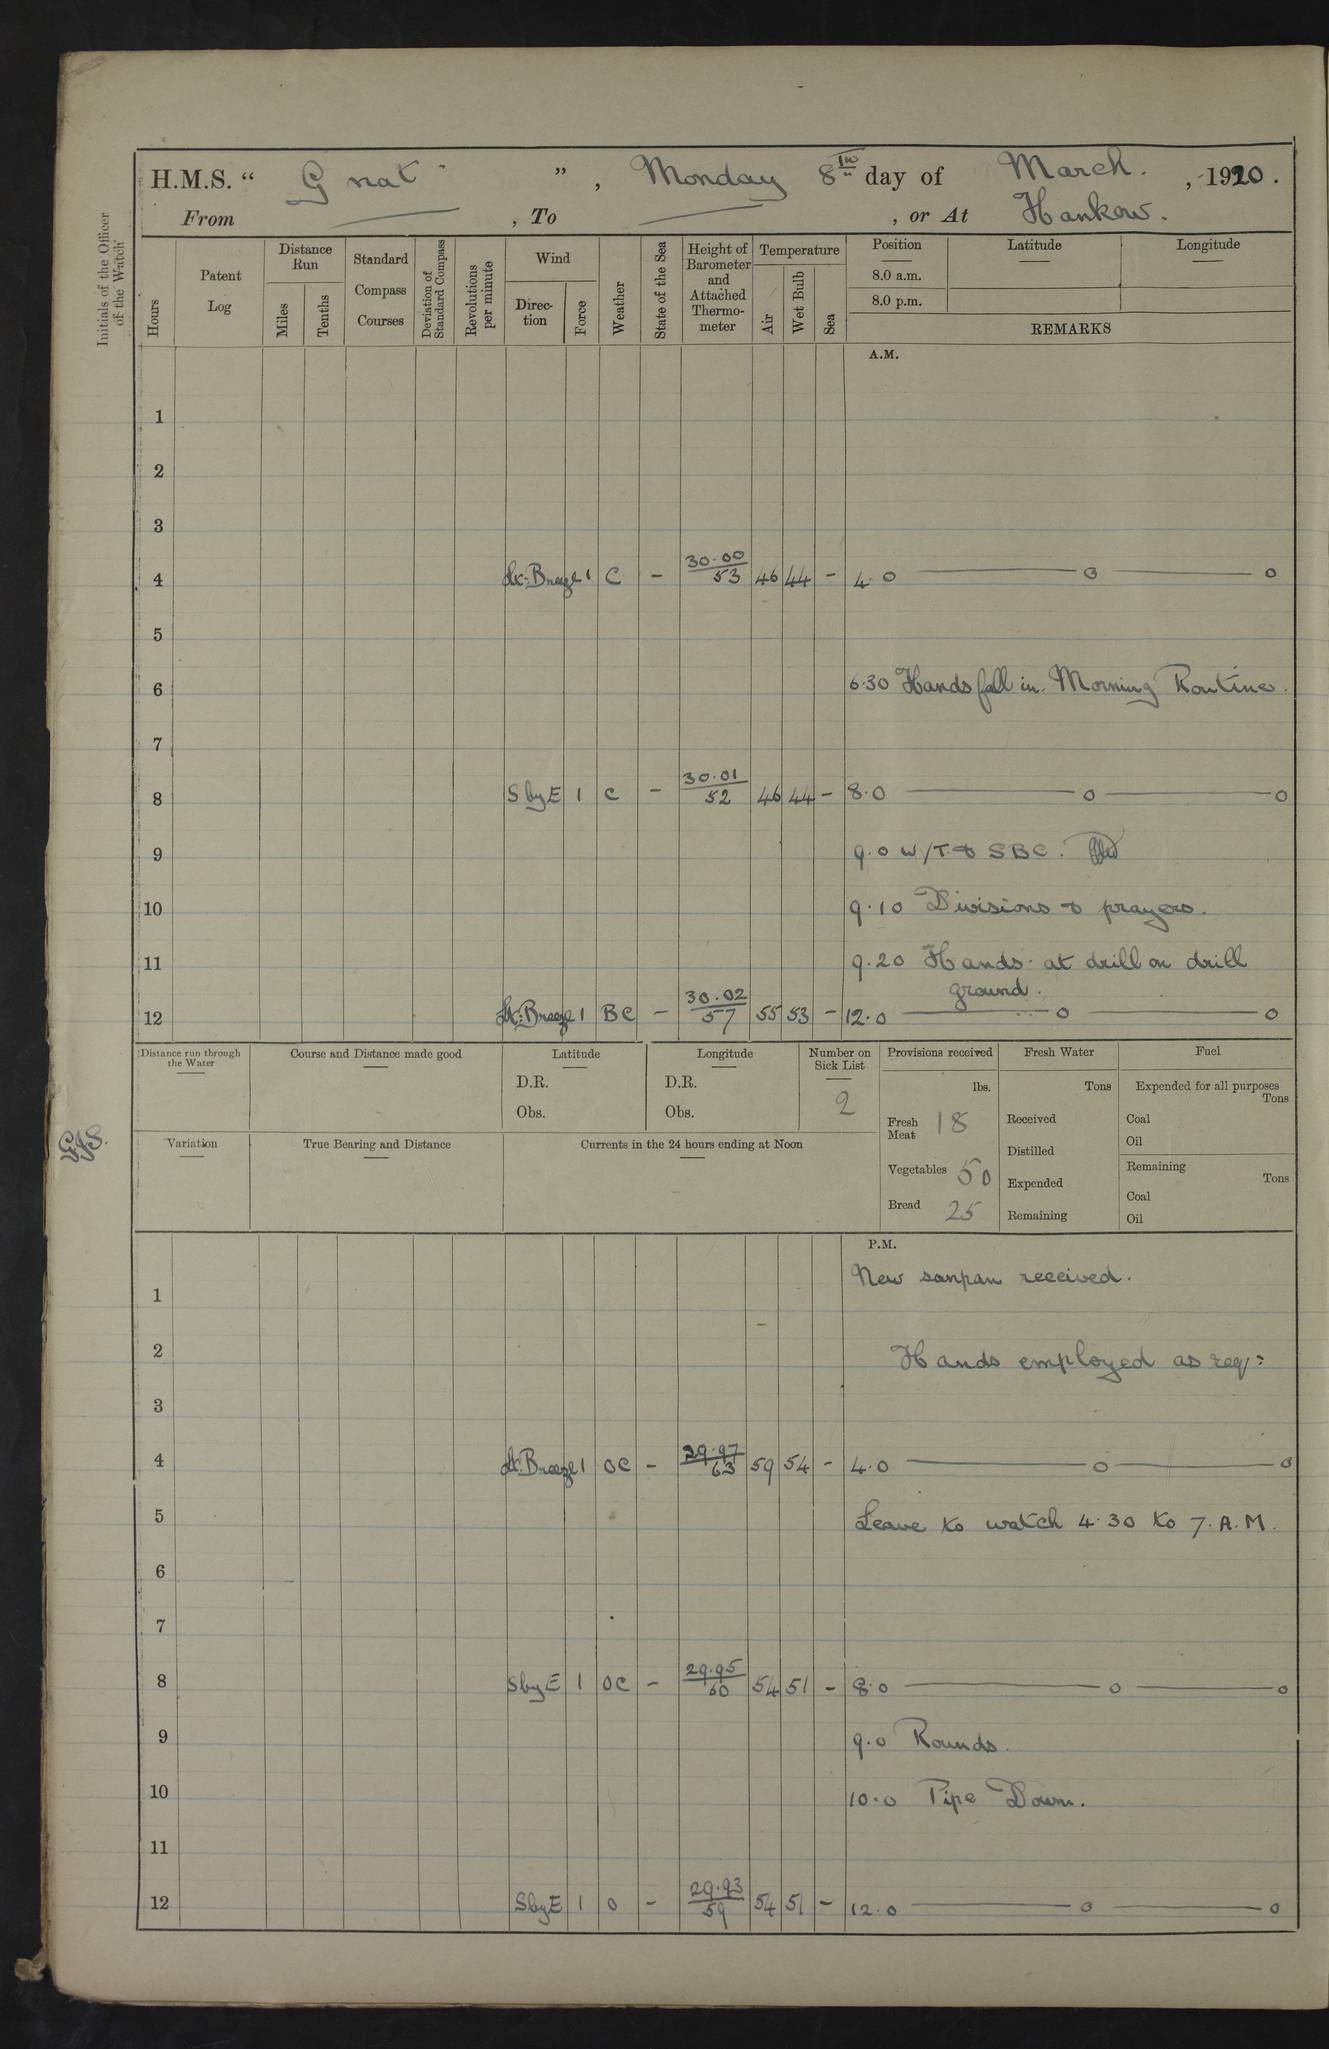 H.M.S. “ Gnat ” , Monday 8th day of March. , 1920 .
From , To , or At Hankow.
Initials of the Officer of the Watch
Hours
Patent Log
Distance Run
Miles
Tenths
Standard Compass Courses
Deviation of Standard Compass
Revolutions per minute
Wind
Direc-tion
Force
Weather
State of the Sea
Height of Barometer and Attached Thermo-meter
Temperature
Air
Wet Bulb
Sea
Position
Latitude
Longitude
8.0 a.m.
8.0 p.m.
REMARKS
A.M.
1
2
3
4 Lt: Breeze 1 C – 30.00 / 53 46 44 – 4.0 — o — o
5
6 6.30 Hands fall in. Morning Routine.
7
8 S by E 1 C – 30.01 / 52 46 44 – 8.0 — o — o
9 9.0 W/T. & S B C.
10 9.10 Divisions & prayers.
11 9.20 Hands at drill on drill
ground.
12 Lt: Breeze 1 BC – 30.02 / 57 55 53 – 12.0 — o — o
Distance run through the Water
Course and Distance made good
Latitude
D.R.
Obs.
Longitude
D.R.
Obs.
Number on Sick List
2
Provisions received
lbs.
Fresh Meat 18
Vegetables 50
Bread 25
Fresh Water
Tons
Received
Distilled
Expended
Remaining
Fuel
Expended for all purposes
Tons
Coal
Oil
Remaining
Tons
Coal
Oil
Variation
True Bearing and Distance
Currents in the 24 hours ending at Noon
P.M.
New sanpan received.
1
2 Hands employed as req:
3
4 Lt. Breeze 1 OC – 29.97 / 63 59 54 – 4.0 — o — o
5 Leave to watch 4.30 to 7. A.M.
6
7
8 S by E 1 OC – 29.95 / 60 54 51 – 8.0 — o — o
9 9.0 Rounds.
10 10.0 Pipe Down.
11
12 S by E 1 O – 29.93 / 59 54 51 – 12.0 — o — o